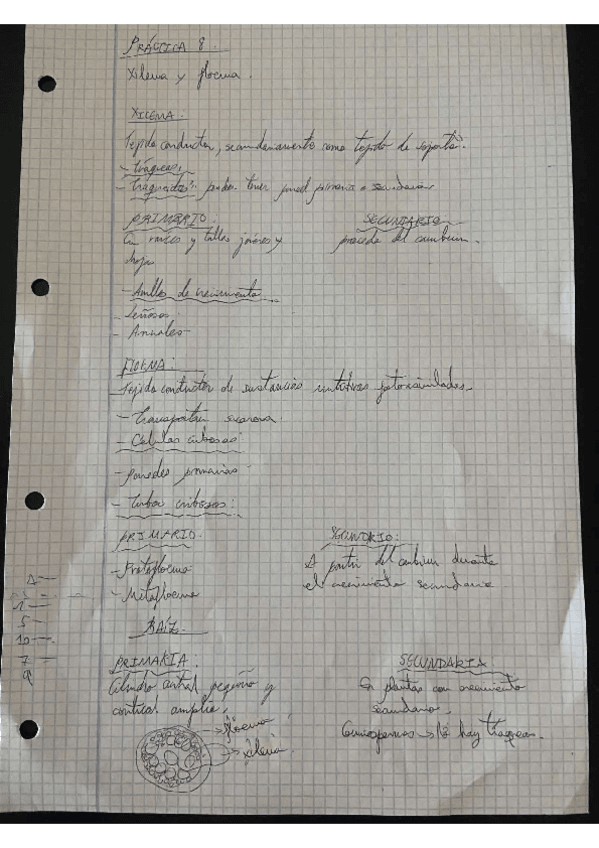 PRÁCTICA 8.
Xilema y floema.
XILEMA:
Tejido conductor, secundariamente como tejido de soporte.
- Tráqueas.
- Traqueidas: poder tener pared primaria o secundaria
PRIMARIO:
En raíces y tallos jóvenes y
hojas
SECUNDARIO
procede del cambium.
- Anillos de crecimiento
- Leñosos
- Anuales
FLOEMA:
- Tejido conductor de sustancias nutritivas fotoasimiladas.
- Transportan sacarosa
- Células cribosas:
- paredes primarias
- Tubos cribosos:
PRIMARIO.
- Protofloema
- Metafloema
SECUNDRIO:
A partir del cambium durante
el crecimiento secundario
1
5
10
7
9
RAÍZ
PRIMARIA:
Cilindro central pequeño y
cortical amplia,
floema
xilema.
SECUNDARIA
En plantas con crecimiento
secundario,
→ no hay tráqueas.